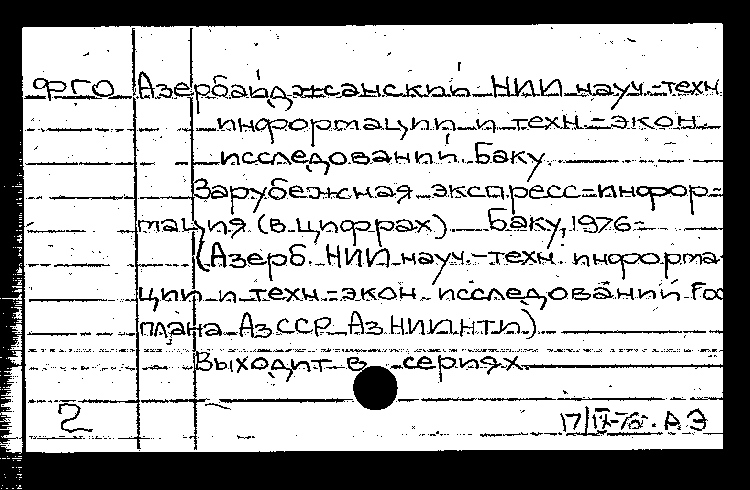 ФГО Азербайджанский НИИ науч.-техн
информации и техн.-экон.
исследований. Баку.
Зарубежная экспресс-инфор-
мация (в цифрах). Баку, 1976-
(Азерб. НИИ науч.-техн. информа-
ции и техн.-экон. исследований Гос
плана АзССР. АзНИИНТИ)
Выходит в сериях
2 17/IX-76. АЭ